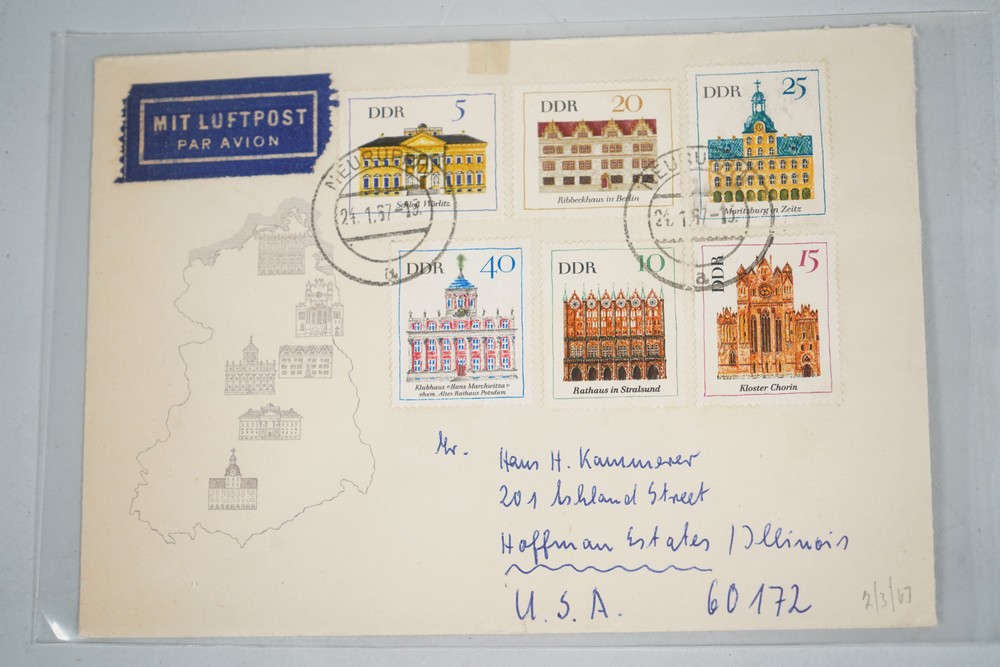 MIT LUFTPOST
PAR AVION
DDR 5
Schloß Wörlitz
DDR 20
Ribbeckhaus in Berlin
DDR 25
Moritzburg in Zeitz
24.1.67-
a
24.1.67-
a
DDR 40
Klubhaus «Hans Marchwitza»
ehem. Altes Rathaus Potsdam
DDR 10
Rathaus in Stralsund
DDR 15
Kloster Chorin
Mr. Hans H. Kammerer
201 Ashland Street
Hoffman Estates / Illinois
U.S.A. 60172
2/3/67